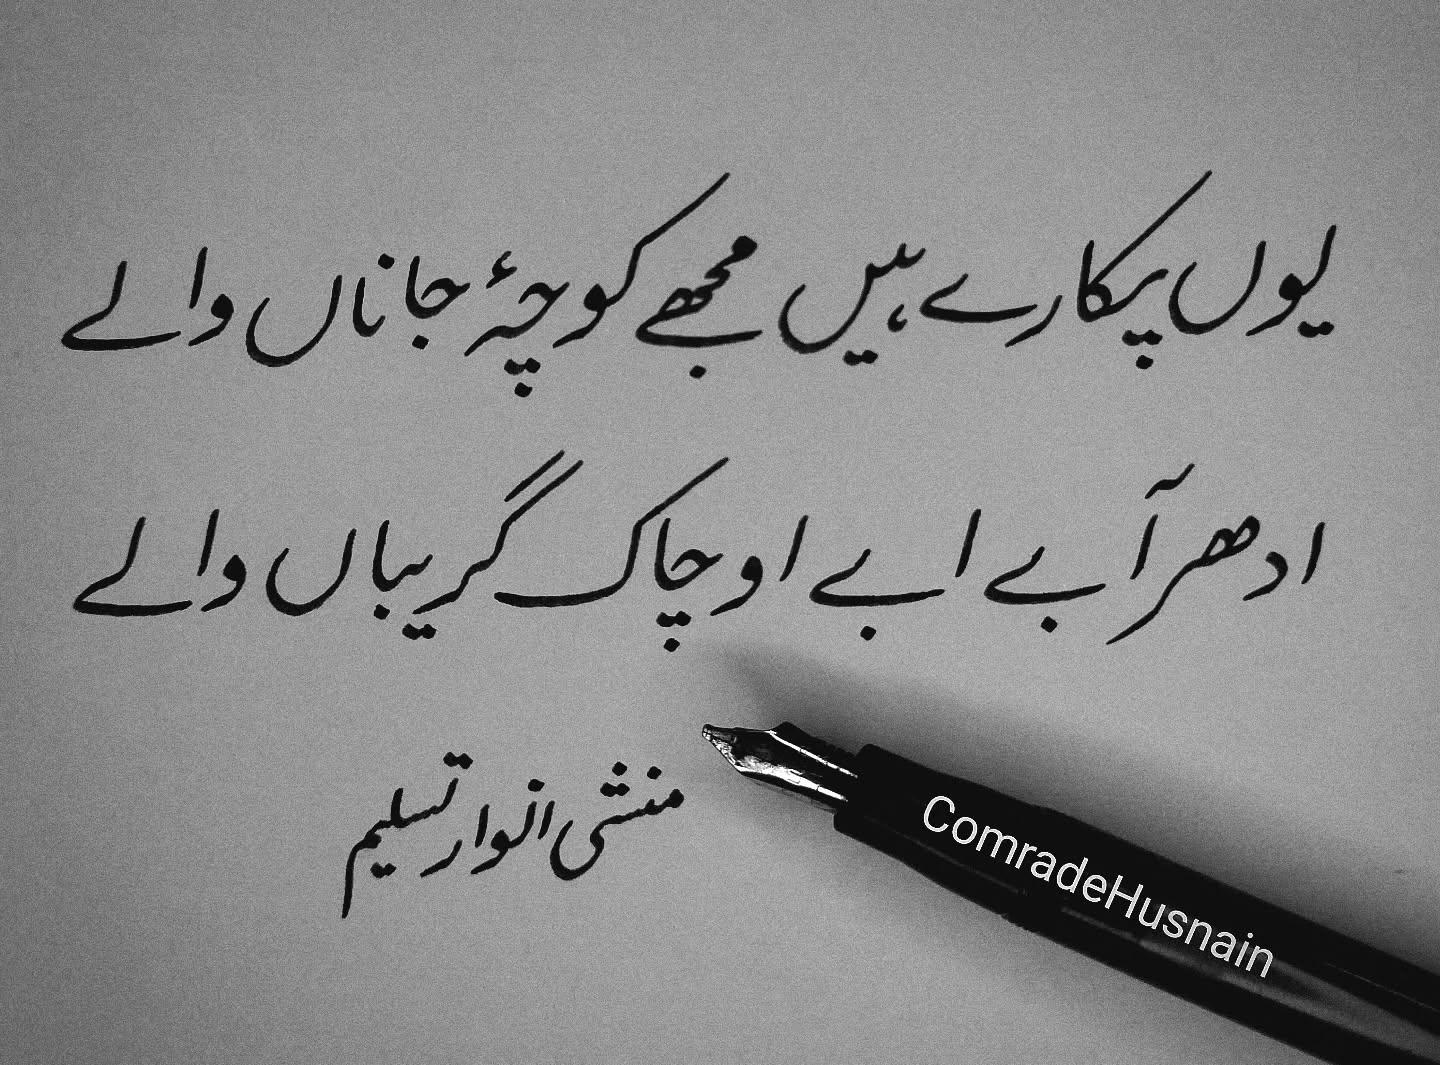 یوں پکارے ہیں مجھے کوچۂ جاناں والے
ادھر آ بے ابے او چاک گریباں والے
منشی انوار تسلیم
ComradeHusnain